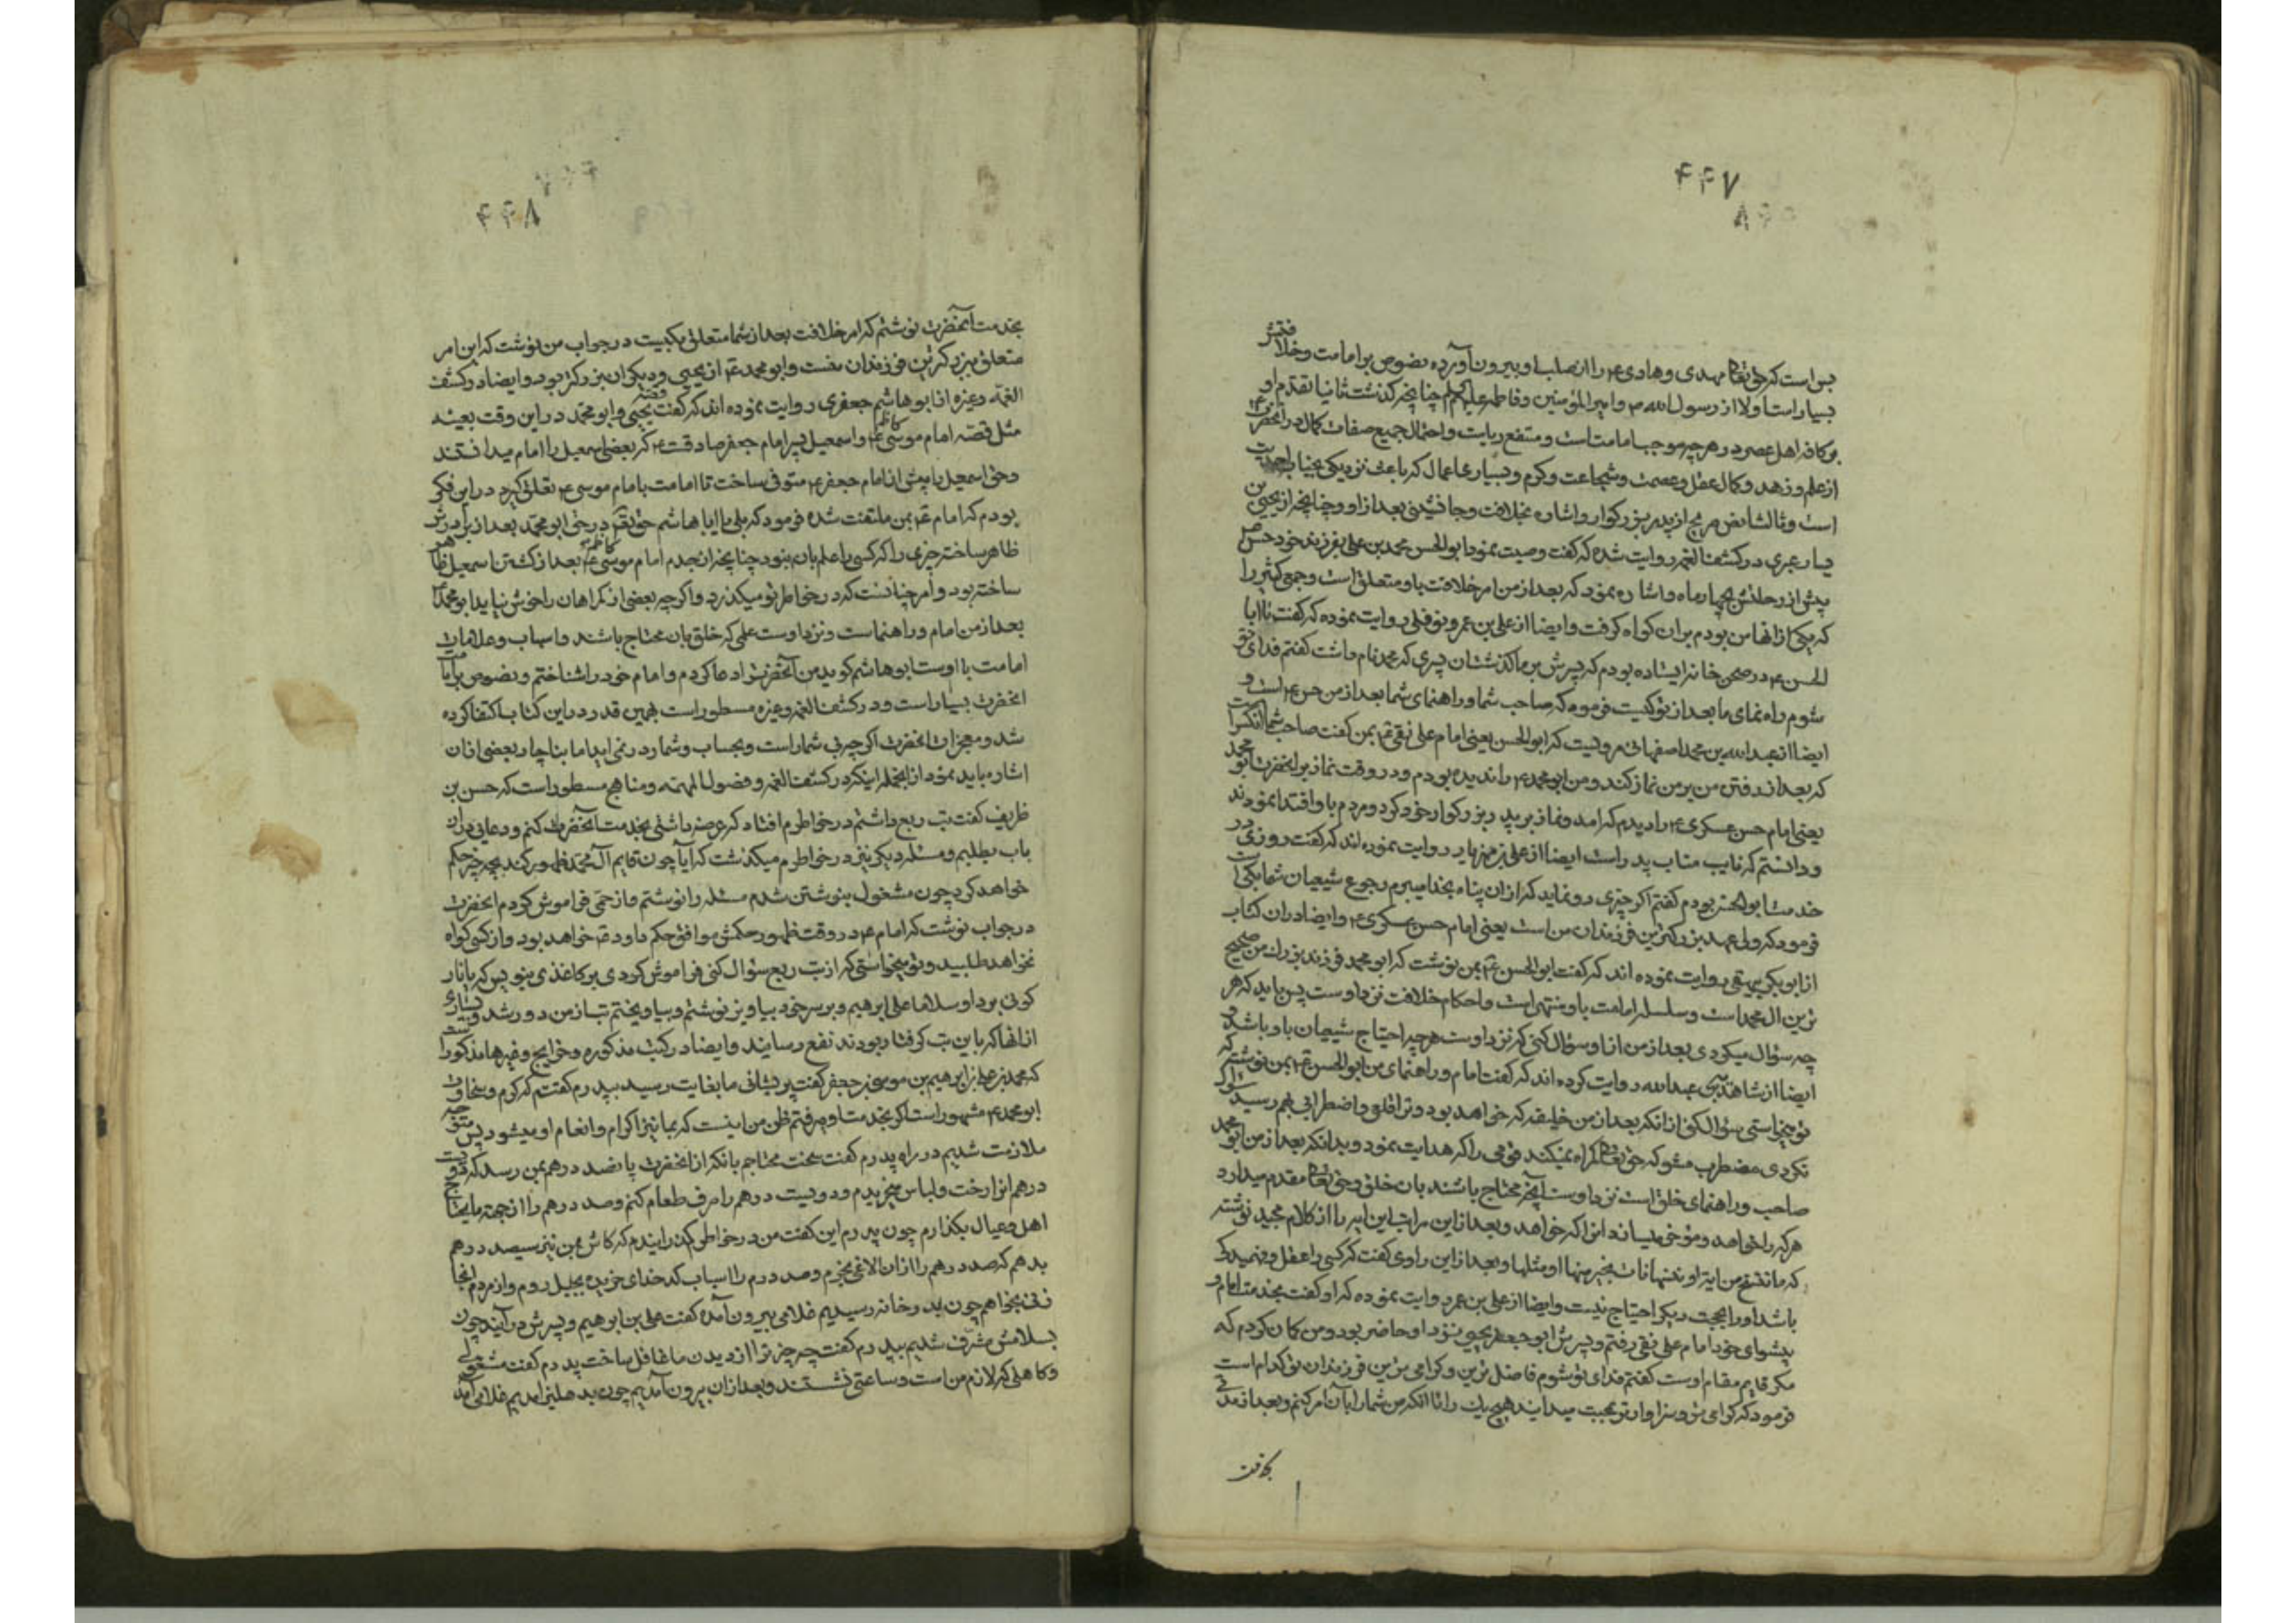 ۴۴۷
بس است که حق تعالی مهدی و هادی ع را از صلب او بیرون آورده نصوص بر امامت و خلافتش
بسیار است اولا از رسول الله ص و امیر المؤمنین و فاطمه علیهم السلام چنانچه گذشت ثانیا تقدم او
بر کافه اهل عصر در هر چه موجب امامت است و متقع ریاست و احتمال جمیع صفات کمال در آنحضرت ع
از علم و زهد و کمال عقل و عصمت و شجاعت و کرم و بسیاری اعمال که باعث نزدیکی بجناب احدیت
است و ثالثا نص صریح از پدر بزرگوار و اشاره بخلافت و جانشینی بعد از او و چنانچه از یحیی بن
یسار عبری در کشف الغمه روایت شده که گفت وصیت نمود ابو الحسن محمد بن علی بفرزند خود حسن
پیش از رحلتش بچهار ماه و اشاره نمود که بعد از من امر خلافت باو متعلق است و جمعی کثیر را
که یکی از آنها من بودم بران گواه گرفت و ایضا از علی بن عمرو نوفلی روایت نموده که گفت با ابا
الحسن ع در صحن خانه ایستاده بودم که پسرش بر ما گذشت آن پسری که محمد نام داشت گفتم فدای تو
شوم راه نمای ما بعد از تو کیست فرموه که صاحب شما و راهنمای شما بعد از من حسن ع است و
ایضا از عبد الله بن محمد اصفهانی مرویست که ابو الحسن یعنی امام علی نقی ع بمن گفت صاحب شما آنکس است
که بعد از رفتن من بر من نماز کند و من ابو محمد ع را ندیده بودم و در وقت نماز بر آنحضرت ابو محمد
یعنی امام حسن عسکری ع را دیدم که آمد و نماز بر پدر بزرگوار خود کرد و مردم باو اقتدا نمودند
و دانستم که نایب مناب پدر است ایضا از علی بن مهزیار روایت نموده اند که گفت روزی در
خدمت ابو الحسن بودم گفتم اگر چیزی رو نماید که از ان پناه بخدا میبرم رجوع شیعیان شما بکی است
فرمود که ولی عهد بزرگترین فرزندان من است یعنی امام حسن عسکری ع و ایضا دران کتاب
از ابو بکر بیهقی روایت نموده اند که گفت ابو الحسن ع بمن نوشت که ابو محمد فرزند بزرگ من صحیح
ترین ال محمد است و سلسله امامت باو منتهی است و احکام خلافت نزد اوست پس باید که هر
چه سؤال میکردی بعد از من از او سؤال کنی که نزد اوست هر چه احتیاج شیعیان باو باشد و
ایضا از شاهد بن عبد الله روایت کرده اند که گفت امام و راهنمای من ابو الحسن ع بمن نوشته که
تو میخواستی سؤال کنی از انکه بعد از من خلیفه که خواهد بود و ترا قلق و اضطرابی بهم رسید سؤال
نکردی مضطرب مشو که حق تعالی گمراه نمیکند قومی را که هدایت نمود و بدانکه بعد از من ابو محمد
صاحب و راهنمای خلق است نزد اوست آنچه محتاج باشند بان خلق و حق تعالی مقدم میدارد
هر که را خواهد و مؤخر میسازد انرا که خواهد و بعد از این مراتب این ایه را از کلام مجید نوشته
که ما ننسخ من ایة او ننسها نات بخیر منها او مثلها و بعد از این راوی گفت که کسی را عقل و فهمیدگی
باشد او را بحجت دیگر احتیاج نیست و ایضا از علی بن عمر روایت نموده که او گفت بخدمت امام و
پیشوای خود امام علی نقی رفتم و پسرش ابو جعفر یحیی نزد او حاضر بود و من گمان کردم که
مگر قایم مقام اوست گفتم فدای تو شوم فاضل ترین و گرامی ترین فرزندان تو کدام است
فرمود که گرامی تر و سزاوارتر بمحبت میدانید هیچ یک را تا آنکه من شما را بان امر کنم و بعد از مدتی
بخدمت
۴۴۸
بخدمت آنحضرت نوشتم که امر خلافت بعد از شما متعلق بکیست در جواب من نوشت که این امر
متعلق ببزرگترین فرزندان منست و ابو محمد ع از یحیی و دیگران بزرگتر بود و ایضا در کشف
الغمه و غیره از ابو هاشم جعفری روایت نموده اند که گفت قصه یحیی و ابو محمد در این وقت بعینه
مثل قصه امام موسی کاظم ع و اسمعیل پسر امام جعفر صادقست ع که بعضی اسمعیل را امام میدانستند
و حق اسمعیل را پیش از امام جعفر ع متوفی ساخت تا امامت بامام موسی ع تعلق گیرد در این فکر
بودم که امام ع بمن ملتفت شده فرمود که بلی یا ابا هاشم حق تعالی در حق ابو محمد بعد از برادرش
ظاهر ساخته چیزی را که کسی را علم بان نبود چنانچه از جدم امام موسی کاظم ع بعد از گذشتن اسمعیل ظاهر
ساخته بود و امر چنانست که در خواطر تو میگذرد و اگر چه بعضی از گمراهان را خوش نیاید ابو محمد ع
بعد از من امام و راهنماست و نزد اوست علمی که خلق بان محتاج باشند و اسباب و علامات
امامت با اوست ابو هاشم گوید من آنحضرت را دعا کردم و امام خود را شناختم و نصوص بر امامت
آنحضرت بسیار است و در کشف الغمه و غیره مسطور است بهمین قدر در این کتاب اکتفا کرده
شد و معجزات آنحضرت اگر چه بی شمار است و بحساب و شمار در نمی اید اما بناچار بعضی از ان
اشاره باید نمود از انجمله اینکه در کشف الغمه و فصول المهمه و مناهج مسطور است که حسن بن
ظریف گفت تب ربع داشتم در خواطرم افتاد که عرضه داشتی بخدمت آنحضرت کنم و دعائی دران
باب بطلبم و مسئله دیگر نیز در خواطرم میگذشت که ایا چون قایم آل محمد ظهور کند بچه چیز حکم
خواهد کرد چون مشغول بنوشتن شدم مسئله را نوشتم و از حمی فراموش کردم آنحضرت
در جواب نوشت که امام ع در وقت ظهور حکمش موافق حکم داود ع خواهد بود و از کسی گواه
نخواهد طلبید و تو میخواستی که از تب ربع سؤال کنی فراموش کردی بر کاغذی بنویس که یا نار
کونی بردا و سلاما علی ابرهیم و بر سر خود بیاویز نوشتم و بیاویختم تب از من دور شد و بسیاری
از آنها که باین تب گرفتار بودند نفع رسانید و ایضا در کتب مذکوره و خرایج و غیرها مذکور است
که محمد بن علی بن ابرهیم بن موسی بن جعفر گفت پریشانی ما بغایت رسید بپدرم گفتم که کرم و سخاوت
ابو محمد ع مشهور است اگر بخدمت او میرفتیم ظن من اینست که بما نیز اکرام و انعام او میشود پس متوجه
ملازمت شدیم در راه پدرم گفت سخت محتاجم بانکه از آنحضرت پانصد درهم بمن رسد که دویست
درهم انرا رخت و لباس بخریم و دویست درهم را صرف طعام کنم و صد درهم را از جهة مایحتاج
اهل و عیال بگذارم چون پدرم این گفت من در خواطر گذرانیدم که کاش بمن نیز سیصد درهم
بدهم که صد درهم را از ان الاغی بخرم و صد درم را اسباب کدخدای خریده بجبل روم و از مردم انجا
زنی بخواهم چون بدر خانه رسیدیم غلامی بیرون آمده گفت علی بن ابرهیم و پسرش در آیند چون
بسلامش مشرف شدیم بپدرم گفت چه چیز ترا از دیدن ما غافل ساخت پدرم گفت مشغولی
و کاهلی که لازم من است و ساعتی نشستند و بعد از ان بیرون آمدیم چون بدهلیز امدیم غلامی آمد